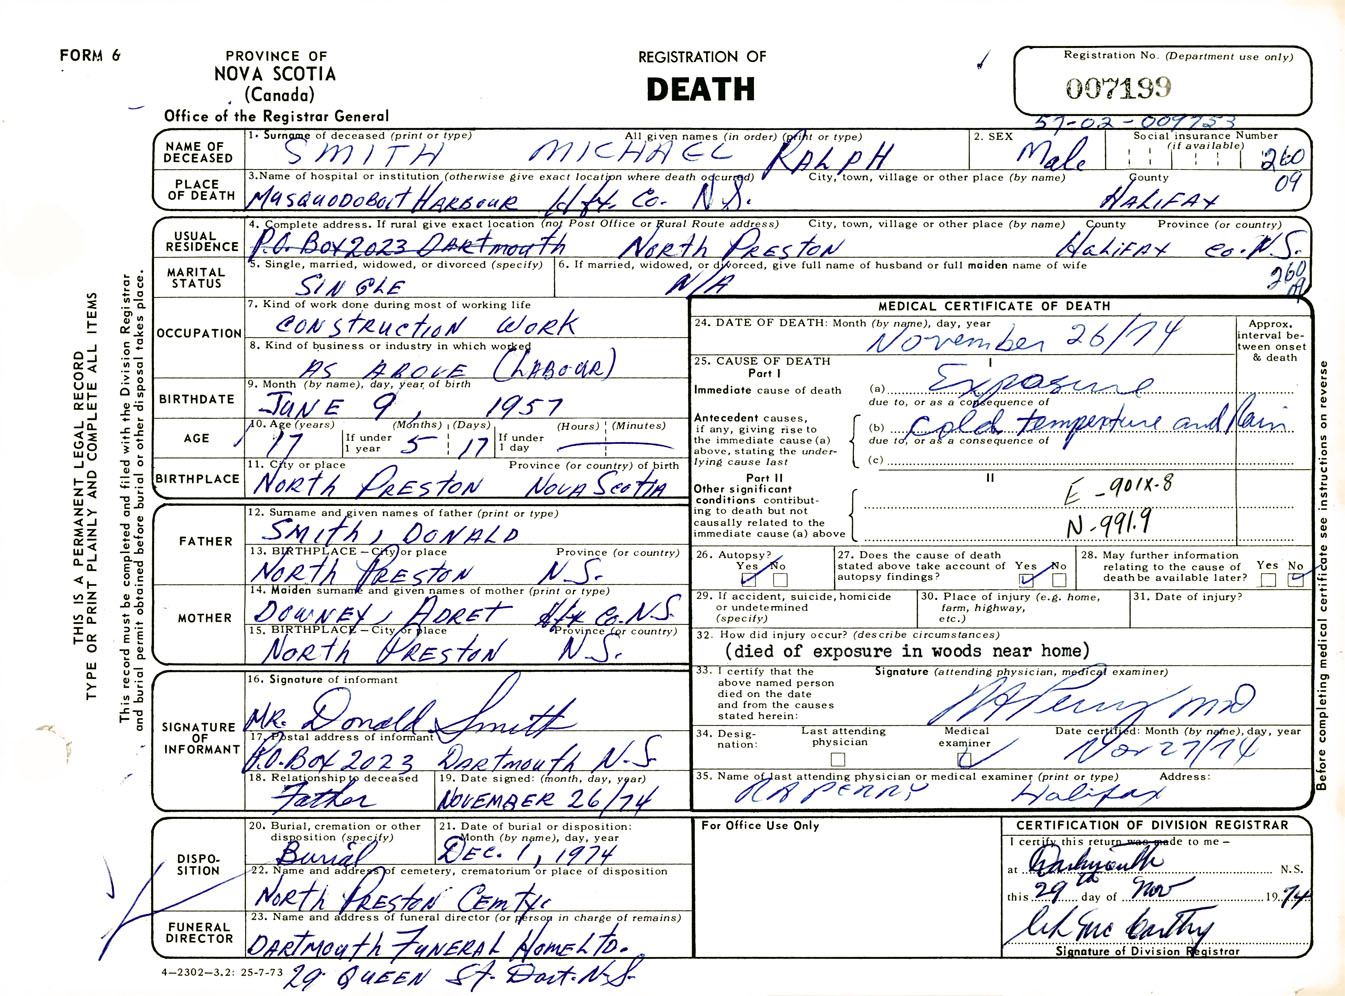 FORM 6
PROVINCE OF
NOVA SCOTIA
(Canada)
Office of the Registrar General
REGISTRATION OF
DEATH
Registration No. (Department use only)
007199
57-02-009753
NAME OF DECEASED
1. Surname of deceased (print or type) All given names (in order) (print or type)
SMITH MICHAEL RALPH
2. SEX
Male
Social insurance Number
(if available)
260
09
PLACE OF DEATH
3. Name of hospital or institution (otherwise give exact location where death occurred) City, town, village or other place (by name) County
MUSQUODOBOIT HARBOUR Hfx. Co. N.S. HALIFAX
USUAL RESIDENCE
4. Complete address. If rural give exact location (not Post Office or Rural Route address) City, town, village or other place (by name) County Province (or country)
P.O. BOX 2023 DARTMOUTH NORTH PRESTON HALIFAX CO. N.S.
260
09
MARITAL STATUS
5. Single, married, widowed, or divorced (specify)
SINGLE
6. If married, widowed, or divorced, give full name of husband or full maiden name of wife
N/A
OCCUPATION
7. Kind of work done during most of working life
CONSTRUCTION WORK
8. Kind of business or industry in which worked
AS ABOVE (LABOUR)
BIRTHDATE
9. Month (by name), day, year of birth
JUNE 9, 1957
AGE
10. Age (years) (Months) (Days) (Hours) (Minutes)
17 If under 1 year 5 17 If under 1 day
BIRTHPLACE
11. City or place Province (or country) of birth
NORTH PRESTON NOVA SCOTIA
FATHER
12. Surname and given names of father (print or type)
SMITH, DONALD
13. BIRTHPLACE – City or place Province (or country)
NORTH PRESTON N.S.
MOTHER
14. Maiden surname and given names of mother (print or type)
DOWNEY, ADRET Hfx Co. N.S
15. BIRTHPLACE – City or place Province (or country)
NORTH PRESTON N.S.
SIGNATURE OF INFORMANT
16. Signature of informant
MR. Donald Smith
17. Postal address of informant
P.O. BOX 2023 DARTMOUTH N.S.
18. Relationship to deceased
Father
19. Date signed: (month, day, year)
NOVEMBER 26/74
DISPO-
SITION
20. Burial, cremation or other disposition (specify)
Burial
21. Date of burial or disposition: Month (by name), day, year
DEC. 1, 1974
22. Name and address of cemetery, crematorium or place of disposition
NORTH PRESTON
FUNERAL DIRECTOR
23. Name and address of funeral director (or person in charge of remains)
DARTMOUTH FUNERAL HOME LTD.
29 QUEEN St. Dart. N.S.
4–2302–3.2: 25-7-73
MEDICAL CERTIFICATE OF DEATH
24. DATE OF DEATH: Month (by name), day, year
November 26/74
Approx. interval be-
tween onset & death
25. CAUSE OF DEATH
Part I
I
Immediate cause of death
(a) Exposure
due to, or as a consequence of
Antecedent causes, if any, giving rise to the immediate cause (a) above, stating the under-
lying cause last
(b) cold temperture and Rain
due to, or as a consequence of
(c)
Part II
II
Other significant conditions contribut-
ing to death but not causally related to the immediate cause (a) above
E-901X-8
N-991.9
26. Autopsy?
Yes No
27. Does the cause of death stated above take account of autopsy findings?
Yes No
28. May further information relating to the cause of death be available later?
Yes No
29. If accident, suicide, homicide or undetermined (specify)
30. Place of injury (e.g. home, farm, highway, etc.)
31. Date of injury?
32. How did injury occur? (describe circumstances)
(died of exposure in woods near home)
33. I certify that the above named person died on the date and from the causes stated herein:
Signature (attending physician, medical examiner)
RA Perry MD
34. Desig-
nation:
Last attending physician
Medical examiner
Date certified: Month (by name), day, year
Nov 27/74
35. Name of last attending physician or medical examiner (print or type) Address:
RA PERRY Halifax
For Office Use Only
CERTIFICATION OF DIVISION REGISTRAR
I certify this return was made to me –
at Dartmouth N.S.
this 29th day of Nov 1974
McCarthy
Signature of Division Registrar
THIS IS A PERMANENT LEGAL RECORD
TYPE OR PRINT PLAINLY AND COMPLETE ALL ITEMS
This record must be completed and filed with the Division Registrar
and burial permit obtained before burial or other disposal takes place.
Before completing medical certificate see instructions on reverse